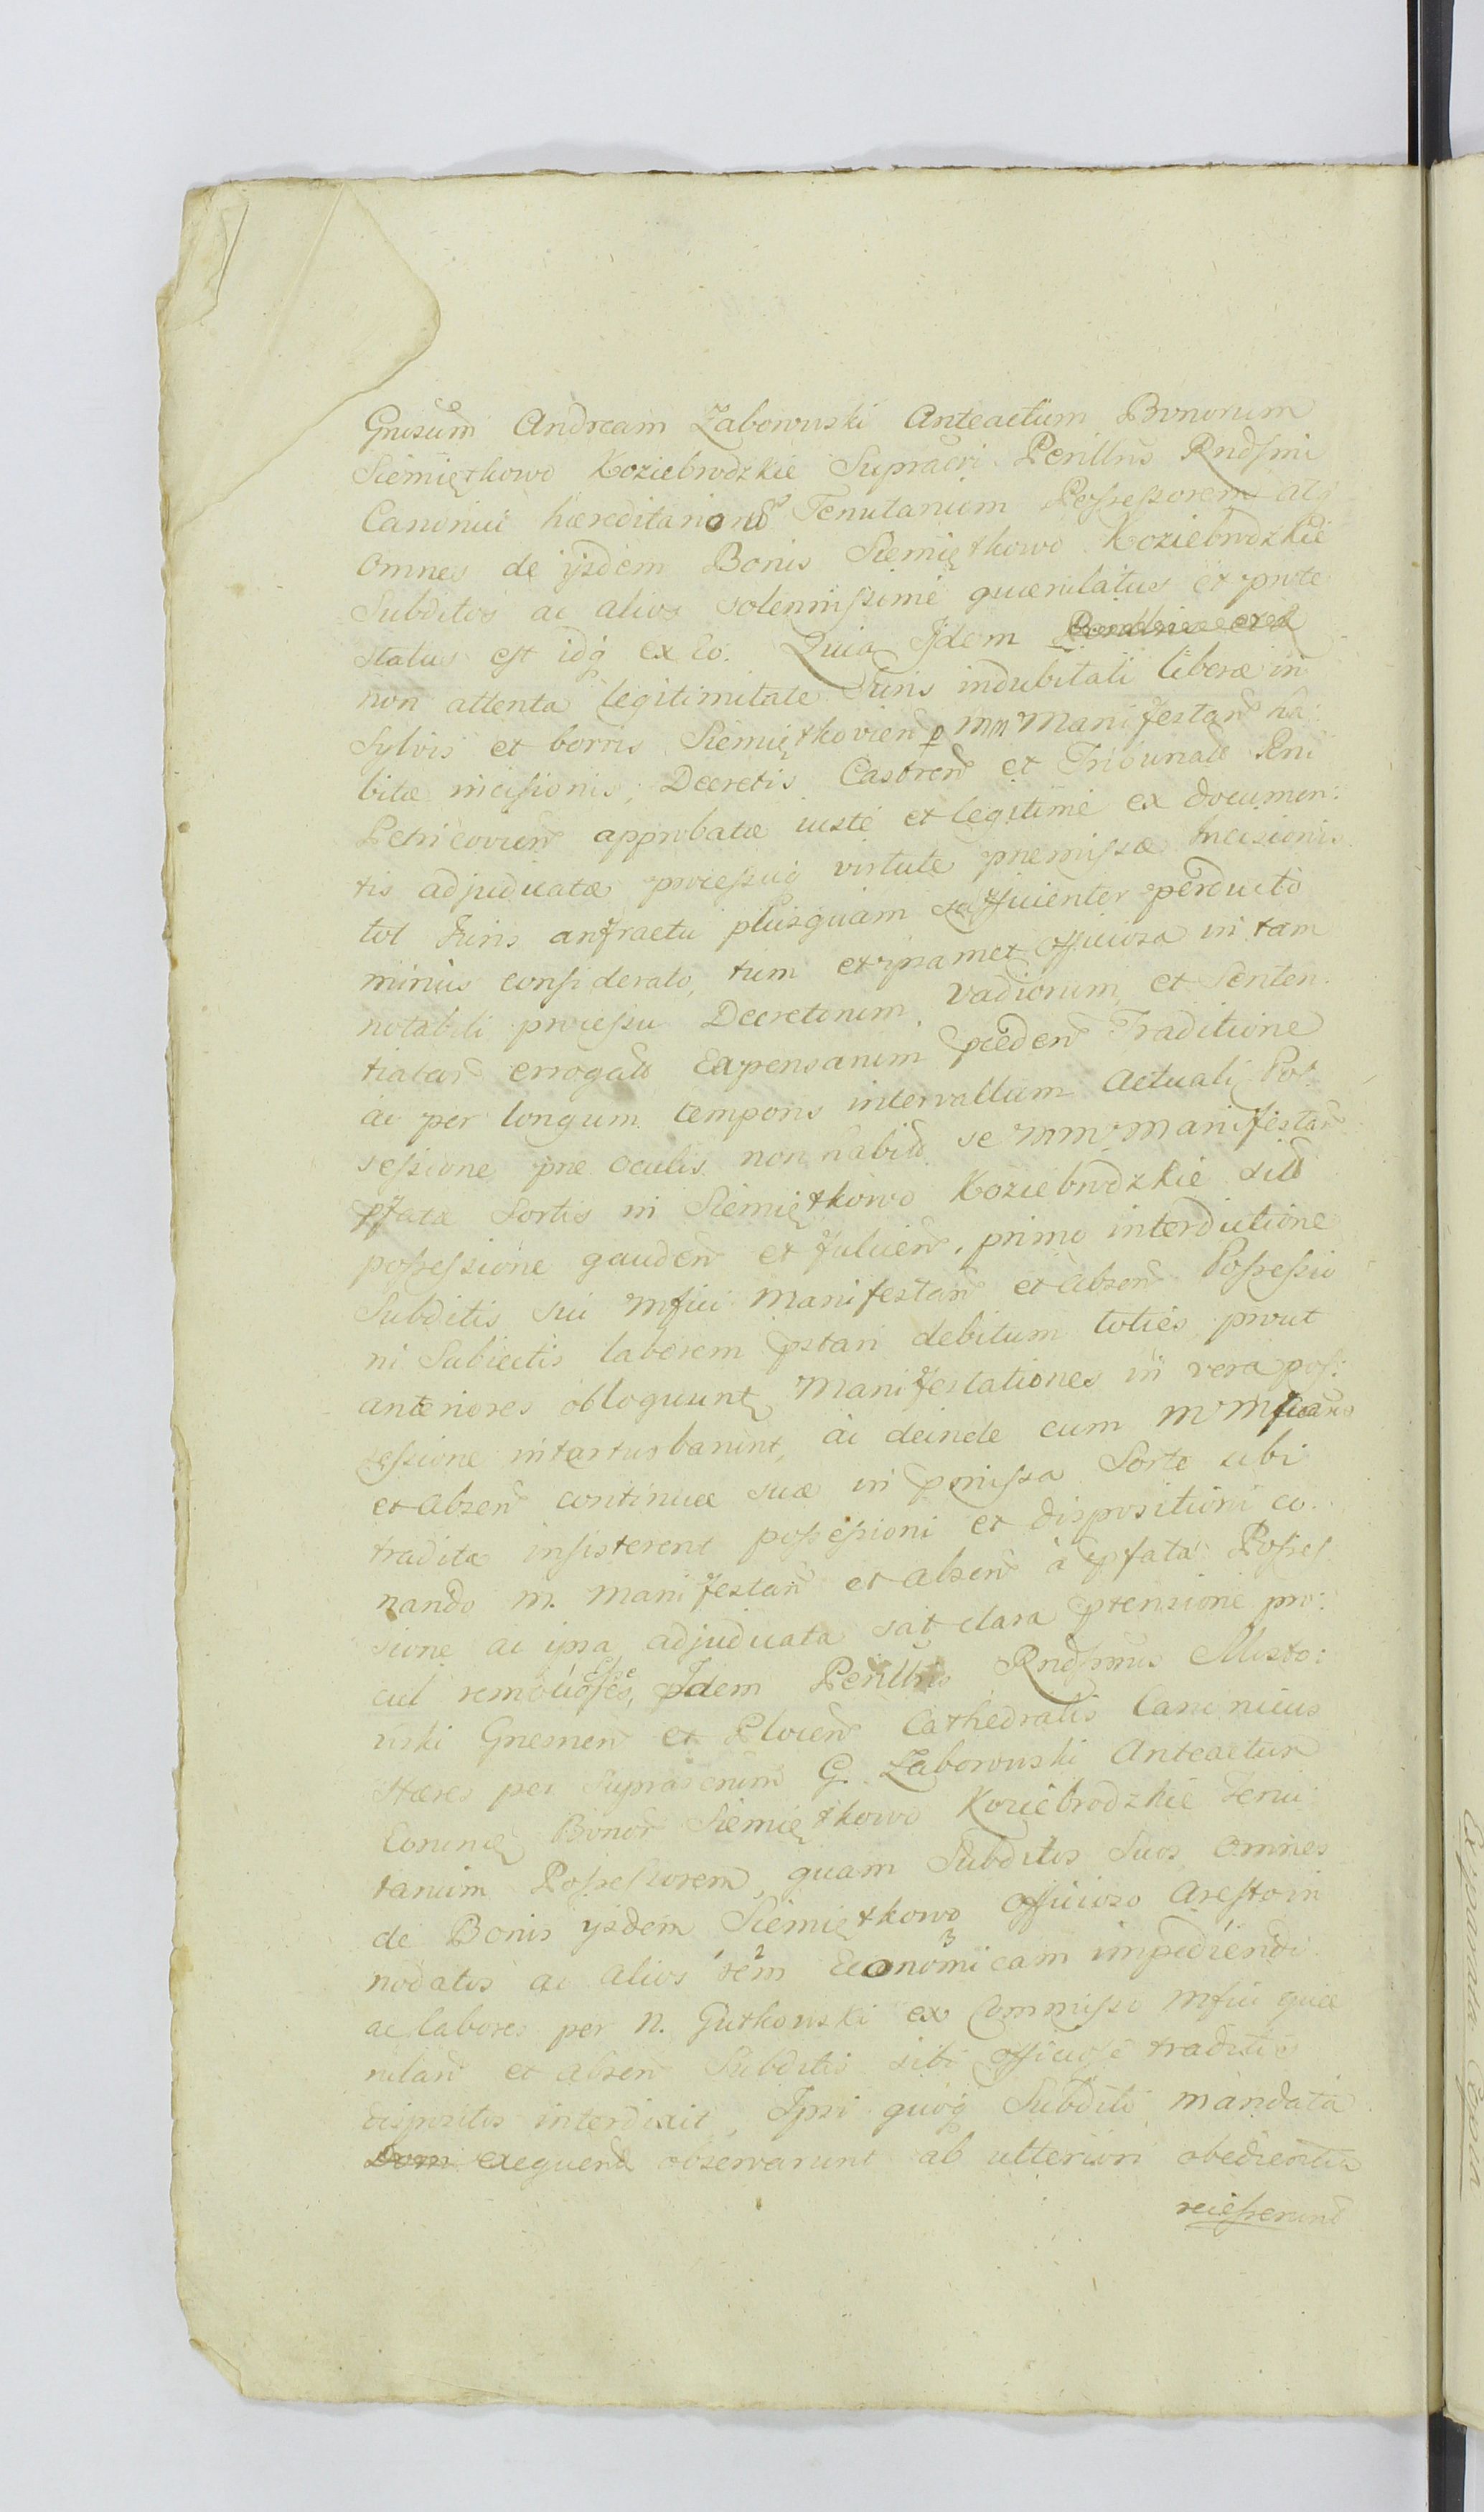 Gnosum Andream Zaborowski Anteactum Bonorum
Siemiętkowo Koziebrodzkie Supracri Perillris Rndssmi
Canonici hæreditariorum Tenutarium Possessorem atq
Omnes de ijsdem Bonis Siemiętkowo Koziebrodzkie
Subditos ac alios solennissime quærulatus et prote
status est idq ex Eo. Quia Ijdem
non attenta legitimitate Juris indubitati liberæ in
Sylvis et borris Siemiętkovien p MM Manifestan ha:
bitæ incisionis, Decretis Castren et Tribunal Rni
Petricovien approbatæ iuste et legitime ex documen:
tis adjudicatæ processuq virtute premissæ Incisionis
tot Juris anfractu plusquam sufficienter perducto
minus considerato, tum et ipsamet officiosa in tam
notabili processu Decretorum, Vadiorum, et Senten
tiatar errogat Expensarum præceden Traditione
ac per longum temporis intervallum Actuali Pos
sessione præ oculis non habit se MM Manifestan
pfatæ Sortis in Siemiętkowo Koziebrodzkie sit
possessione gauden et fulcien, primo interdictione
Subditis sui Mfici Manifestan et absen Possessio
ni Subiectis laborem pstari debitum toties prout
anteriores obloquunt Manifestationes in vera pos:
sessione
et absen continuæ suæ in pmissa Sorte sibi
tradita insisterent possessioni et dispositioni co.
nando M. Manifestan et absen à pfata Posses
sione ac ipsa adjudicata sat clara ptensione pro:
cul Idem Perillris Rndssmus Misto:
wski Gnesnen et Plocen Cathedralis Canonicus
Hæres per Suprascrum G. Zaborowski Anteactum
Eorunq Bonor Siemiętkowo Koziebrodzkie Tenu:
tarium Possessorem, quam Subditos Suos Omnes
de Bonis ijsdem Siemiętkowo officioso Aresto in
nodatos ac alios rem Economicam impediendi
ac labores per N. Gutkowski ex Commisso Mfici quæ
rulan et absen Subditis sibi officiose traditis
dispositos interdixit, Ipsi quoq Subditi mandata
exequen observarunt ab ulteriori obedientia
recesserunt